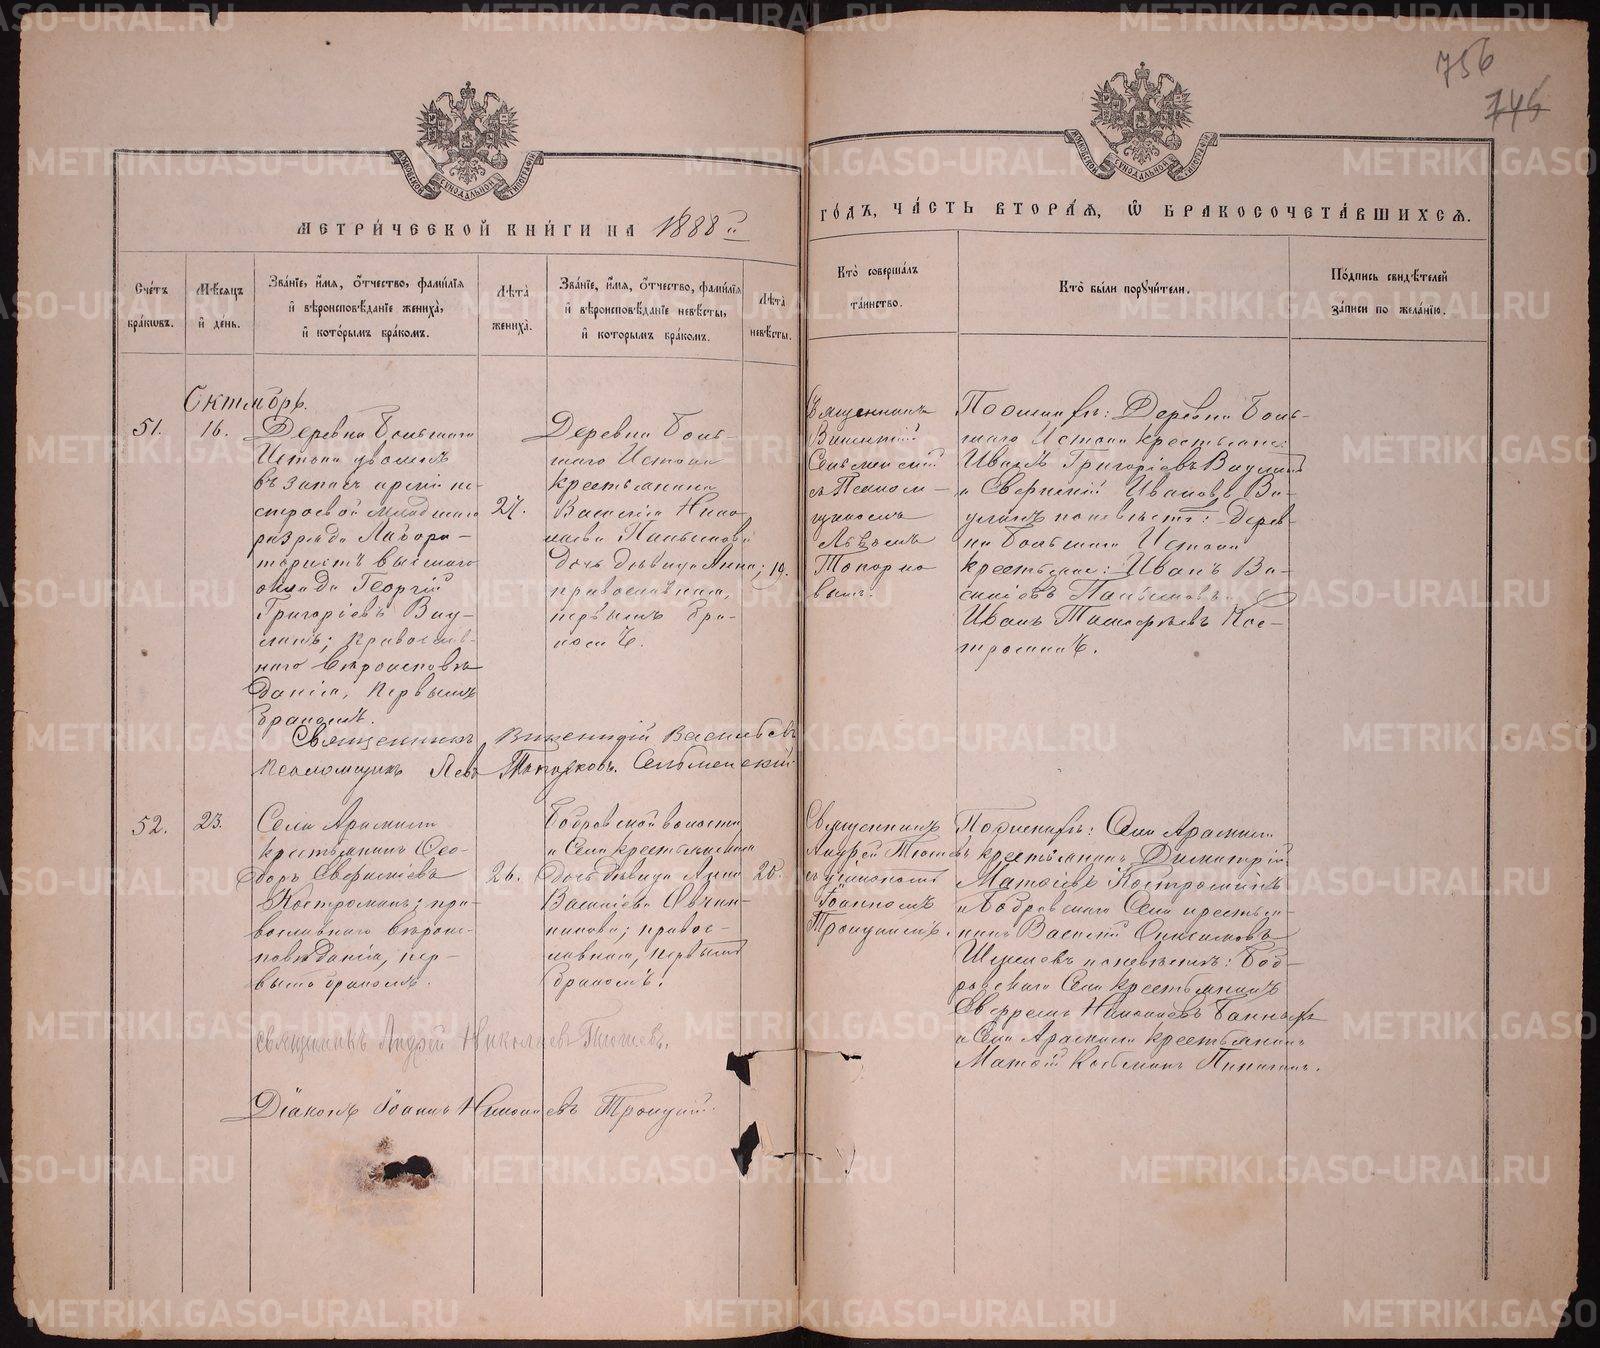 756
746
МОСКОВСКОЙ СѴНОДАЛЬНОЙ ТИПОГРАФІИ
МОСКОВСКОЙ СѴНОДАЛЬНОЙ ТИПОГРАФІИ
МЕТРИ́ЧЕСКОЙ КНИ́ГИ НА 1888й
ГО́ДЪ, ЧА́СТЬ ВТОРА́Я, Ѡ БРАКОСОЧЕТА́ВШИХСЯ.
Сче́тъ бра́кѡвъ.
Мѣ́сяцъ и҆ де́нь.
Зва́нїе, и҆́мя, ѻ҆́тчество, фами́лїѧ и҆ вѣроисповѣ́данїе жениха̀, и҆ кото́рымъ бра́комъ.
Лѣ́та жениха̀.
Зва́нїе, и҆́мя, ѻ҆́тчество, фами́лїѧ и҆ вѣроисповѣ́данїе невѣ́сты, и҆ кото́рымъ бра́комъ.
Лѣ́та невѣ́сты.
Кто̀ соверша́лъ та́инство.
Кто̀ бы́ли порꙋчи́тели.
По́дпись свидѣ́телей за́писи по жела́нїю.
Октябрь.
51.
16.
Деревни Большаго
Истока уволен.
въ запасъ арміи не-
строевой младшаго
разряда Лабора-
тористъ высшаго
оклада Георгій
Григоріевъ Вау-
линъ; православ-
наго вѣроисповѣ-
данія, первымъ
бракомъ.
27.
Деревни Боль-
шаго Истока
крестьянина
Василія Нико-
лаева Пальмова
дочь дѣвица Анна;
православная,
первымъ бра-
комъ.
19.
Священникъ
Викентій
Сельменскій
съ Псалом-
щикомъ
Львомъ
Топорко-
вымъ.
По женихѣ: Деревни Боль-
шаго Истока крестьяне:
Иванъ Григоріевъ Ваулинъ
и Евгеній Ивановъ Ва-
улинъ по невѣстѣ: Дерев-
ни Большаго Истока
крестьяне: Иванъ Ва-
силіевъ Пальмовъ и
Иванъ Тимофѣевъ Кос-
троминъ.
Священникъ Викентій Васильевъ
Псаломщикъ Левъ Топорковъ. Сельменскій
52.
23.
Села Арамили
крестьянинъ Ѳео-
доръ Евгеніевъ
Костроминъ; пра-
вославнаго вѣроис-
повѣданія, пер-
вымъ бракомъ.
26.
Бобровской волости
и Села крестьянина
дочь дѣвица Анна
Васильева Овчин-
никова; правос-
лавная, первымъ
бракомъ.
20.
Священникъ
Андрей Тютевъ
съ діакономъ
Іоанномъ
Троицкимъ.
По женихѣ: Села Арамили
крестьянинъ Димитрій
Матѳіевъ Костроминъ
и Бобровскаго Села крестья-
нинъ Василій Онисимовъ
по невѣстѣ: Боб-
ровскаго Села крестьянинъ
Ефремъ Николаевъ
и Села Арамили крестьянинъ
Матѳій Козьминъ
Священникъ Андрей Николаевъ Тютевъ.
Діаконъ Іоаннъ Николаевъ Троицкій.
METRIKI.GASO-URAL.RU